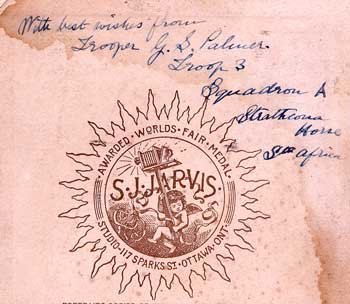 With best wishes from
Trooper G. S. Palmer
Troop 3
Squadron A
Strathcona
Horse
Sth Africa
AWARDED • WORLDS • FAIR • MEDAL
S.J. JARVIS
STUDIO - 117 SPARKS ST • OTTAWA • ONT